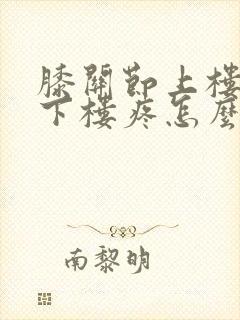 膝關節上樓
下樓疼怎麼
南黎明